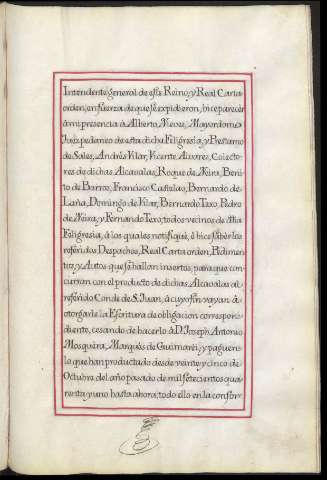 Intendente general de este Reino, y Real Carta
orden, en fuerza de que se expidieron, hice parecér
à mi presencia à Alberto Neves, Mayordomo
Juez pedaneo de esta dicha Feligresia, y Prestamo
de Sales, Andrés Vilar, Vicente Alvarez, Colectores
de dichas Alcavalas, Roque de Neira, Beni-
to de Barros, Francisco Castelao, Bernardo de
Laña, Domingo de Vilar, Bernardo Taxo, Pedro
de Neira, y Fernando Texo, todos vecinos de dha
Feligresia, à los quales notifiquè, è hice sabèr los
referidos Despachos, Real Carta orden, Pedimen-
tos, y Autos que se hallan insertos, para que con-
curran con el producto de dichas Alcavalas al
referido Conde de S. Juan, à cuyo fin vayan à
otorgar la Escritura de obligacion correspon-
diente, cesando de hacerlo à D. Joseph Antonio
Mosquera, Marqués de Guimarei, y paguen
lo que han productado desde veinte y cinco de
Octubre del año pasado de mil setecientos qua-
renta y uno hasta ahora, todo ello en la confor-